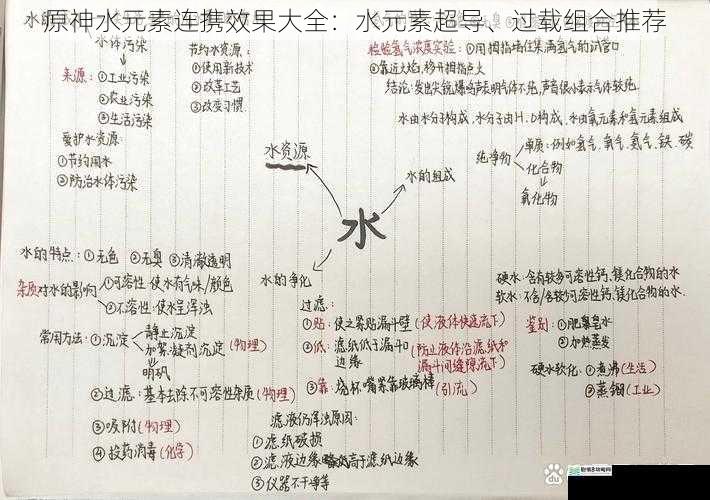 原神水元素连携效果大全：水元素超导、过载组合推荐
水体污染
来源：①工业污染
②农业污染
③生活污染
爱护水资源
①节约用水
②防治水体污染
节约水资源：
①使用新技术
②改革工艺
③改变习惯.
水资源
检验氢气浓度实验：①用拇指堵住集满氢气的试管口
②靠近火焰,移开拇指点火
结论：发出尖锐爆鸣声表明气体不纯,声音很小表示气体较纯.
水由水分子构成,水分子由H、O构成、水由氧元素和氢元素组成
纯净物
单质：例如氢气、氧气、氮气、铁、碳
化合物
氧化物
水的组成
水
水的特点：①无色 ②无臭 ③清澈透明
杂质对水的影响
①可溶性：使水有气味/颜色
②不溶性：使水呈浑浊
常用方法：①沉淀
静止沉淀
加絮凝剂沉淀(物理)
明矾
②过滤：基本去除不可溶性杂质(物理)
③吸附(物理)
④投药消毒(化学)
水的净化
过滤：
①贴：使之紧贴漏斗壁(使液体快速流下)
②低：滤纸低于漏斗口边缘
(防止液体沿滤纸和漏斗间缝隙流下)
③靠：烧杯嘴紧靠玻璃棒(引流)
滤液仍浑浊原因：
①滤纸破损
②滤液边缘高于滤纸边缘
③仪器不干净等
硬水：含有较多可溶性钙、镁化合物的水
软水：不含/含较少可溶性钙、镁化合物的水.
鉴别：①肥皂水
②加热蒸发
硬水软化：①煮沸(生活)
②蒸馏(工业)
Bai
du